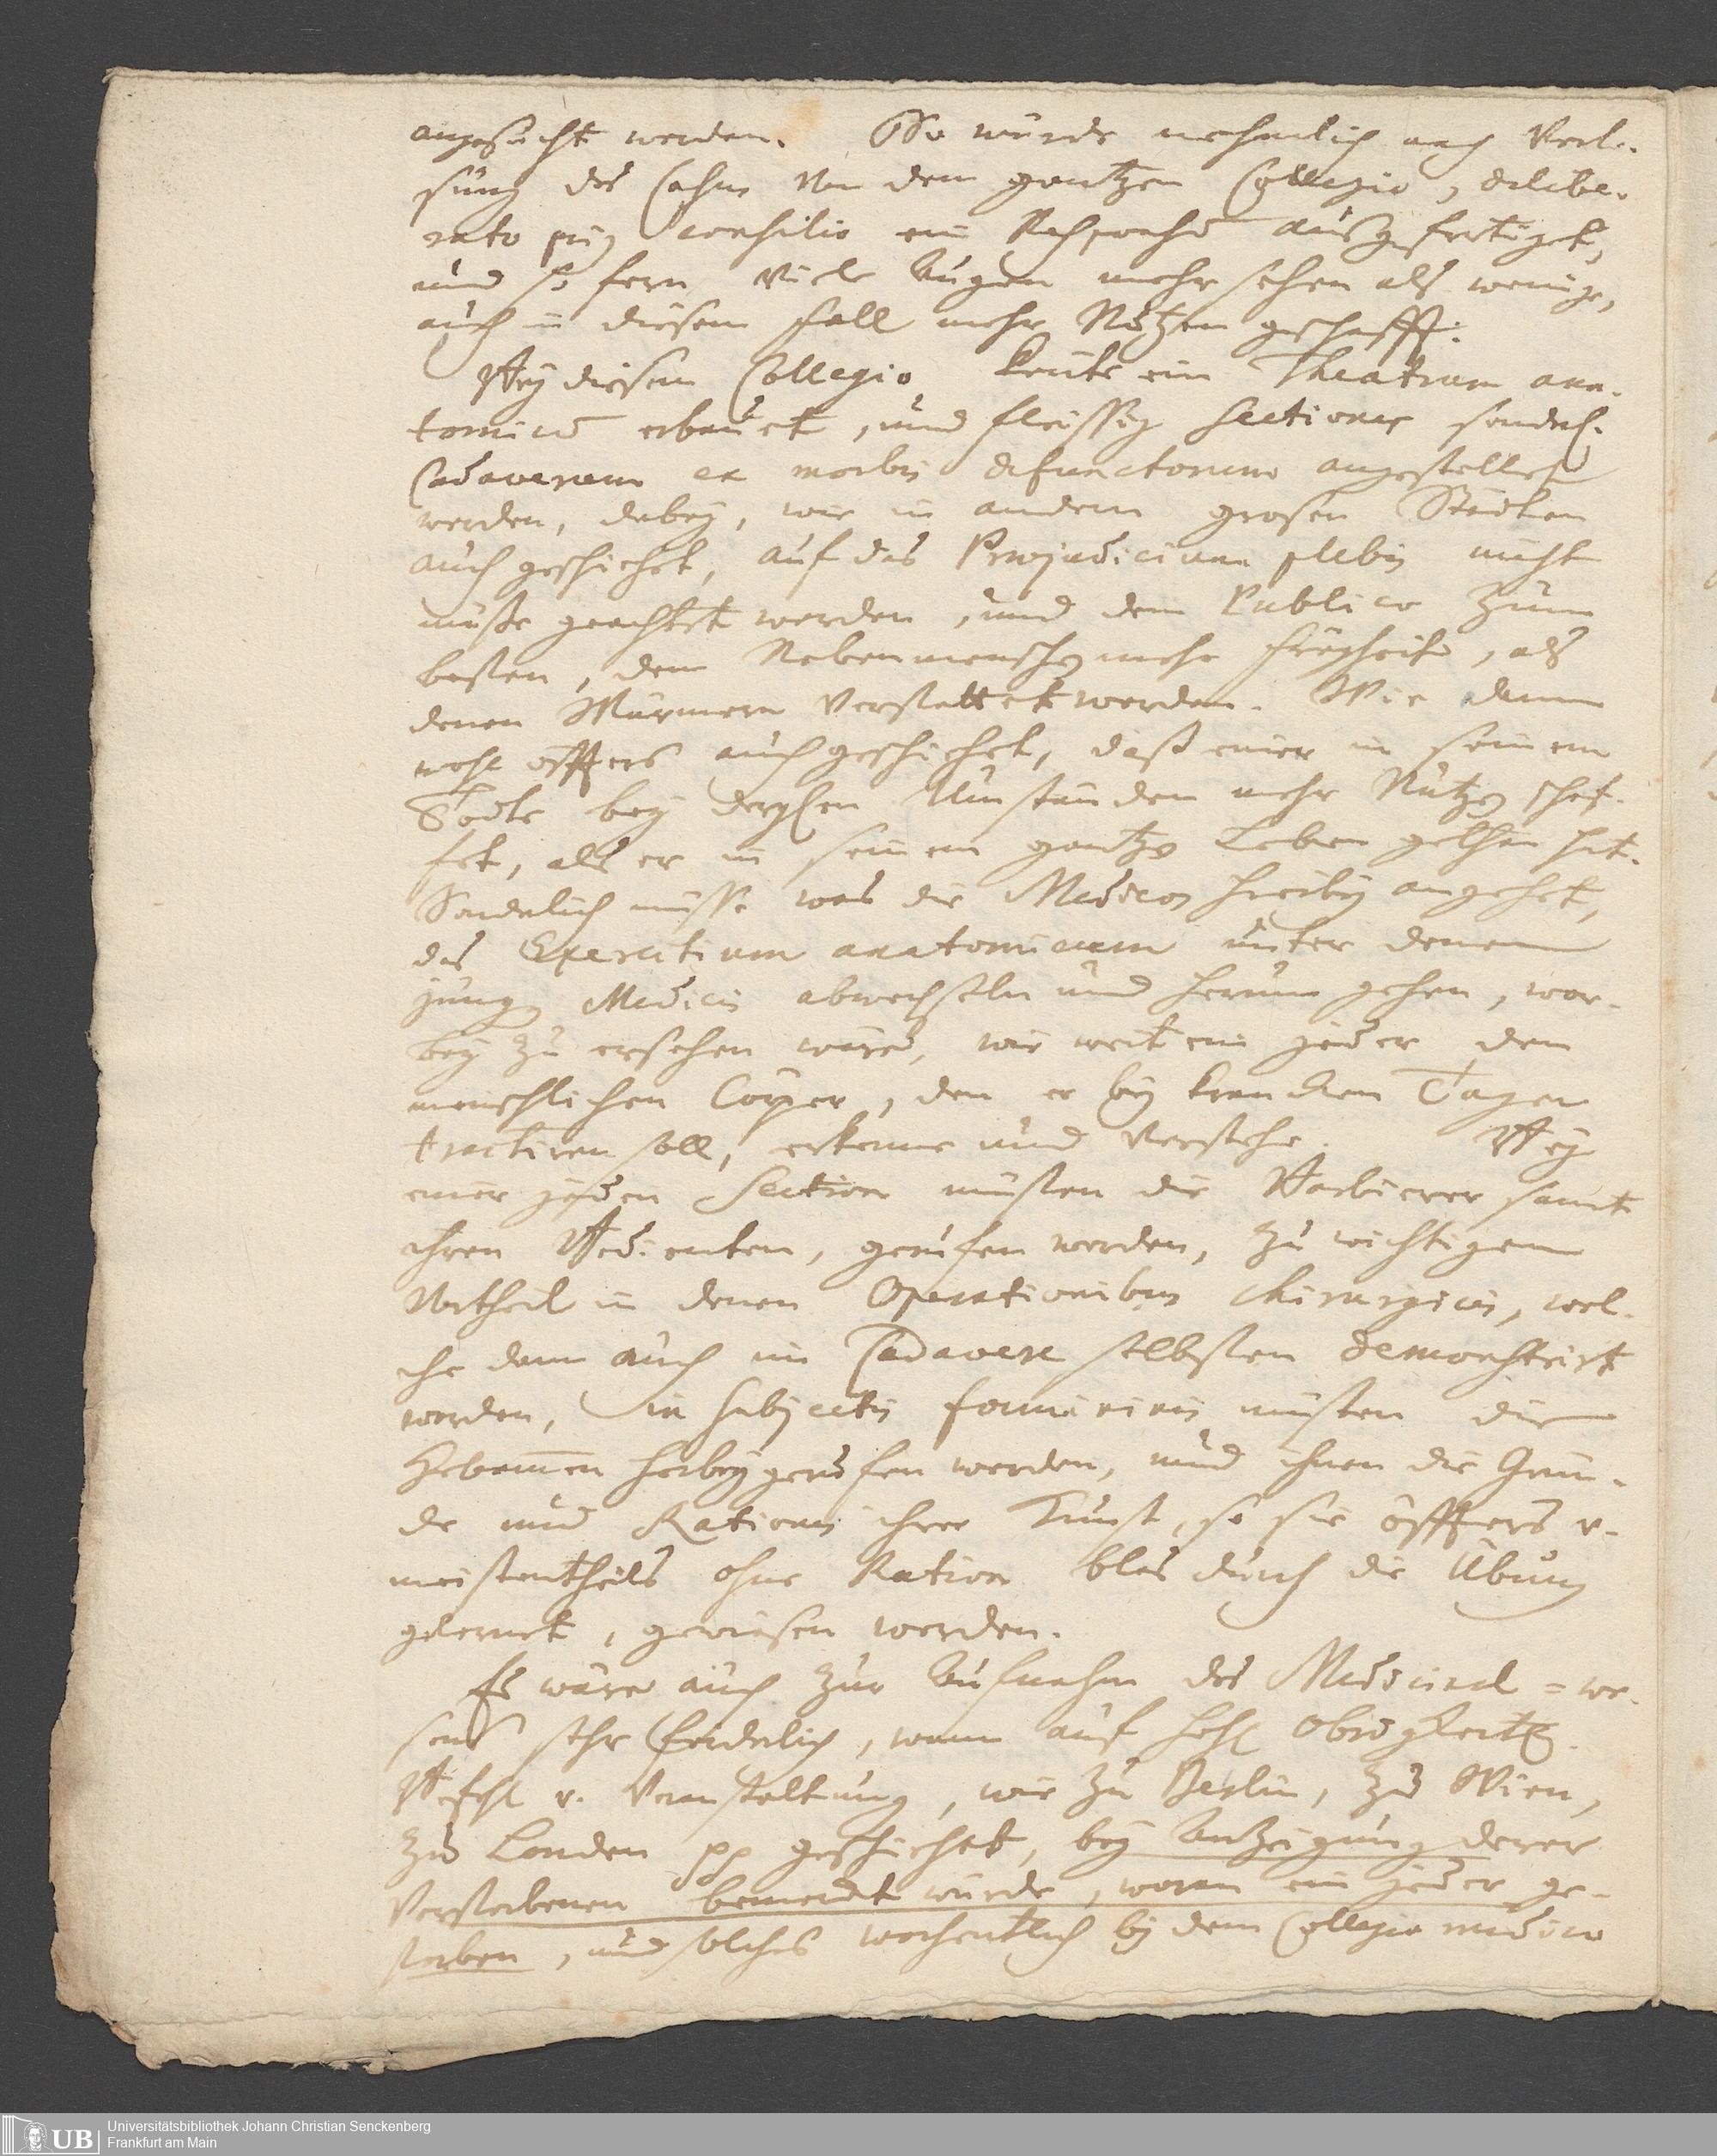 angesucht werden. So würde nehmlich nach Verle-
sung des Casus von dem gantzen Collegio, delibe-
rato prius consilio ein Responsum ausgefertiget,
und so fern viele Augen mehr sehen als wenige,
auch in diesem Fall mehr Nutzen geschafft.
Bey diesem Collegio könte ein Theatrum ana-
tomicum erbauet, und fleissig Sectiones sonderl.
Cadaverum ex morbis defunctorum angestellet
werden, dabey, wie in andern grosen Städten
auch geschiehet, auf das Præjudicium plebis nicht
müste geachtet werden, und dem Publico zum
besten, dem Nebenmenschen mehr Freyheit, als
denen Würmern verstattet werden. Wie dann
wohl öffters auch geschiehet, daß einer in seinem
Todte bey dergleichen Umständen mehr Nutzen schaf-
fet, als er in seinem gantzen Leben gethan hat.
Sonderlich müste was die Medicos hierbey angehet,
das Exercitium anatomicum unter denen
jungen Medicis abwechseln und herum gehen, wor-
bey zu ersehen wäre, wie weit ein jeder den
menschlichen Cörper, den er bey krancken Tagen
tractiren soll, erkenne und verstehe. Bey
einer jeden Section müsten die Barbierer samt
ihren Bedienten, gerufen werden, zu wichtigem
Vortheil in denen Operationibus chirurgicis, wel-
che dann auch im Cadavere selbsten demonstrirt
werden, in subjectis foemininis müsten die
Hebammen herbey gerufen werden, und ihnen die Grün-
de und Rationes ihrer Kunst, so sie öffters u.
meistentheils ohne Ration blos durch die Übung
gelernet, gewiesen werden.
Es wäre auch zur Aufnahm des Medicinal=we-
sens sehr förderlich, wann auf hohe Obrigkeitl.
Befehl u. Veranstaltung, wie zu Berlin, zu Wien,
zu Londen pp geschiehet, bey Anzeigung derer
Verstorbenen bemerckt würde, woran ein jeder ge-
storben, und solches wochentlich bey dem Collegio medico
Universitätsbibliothek Johann Christian Senckenberg
Frankfurt am Main
UB